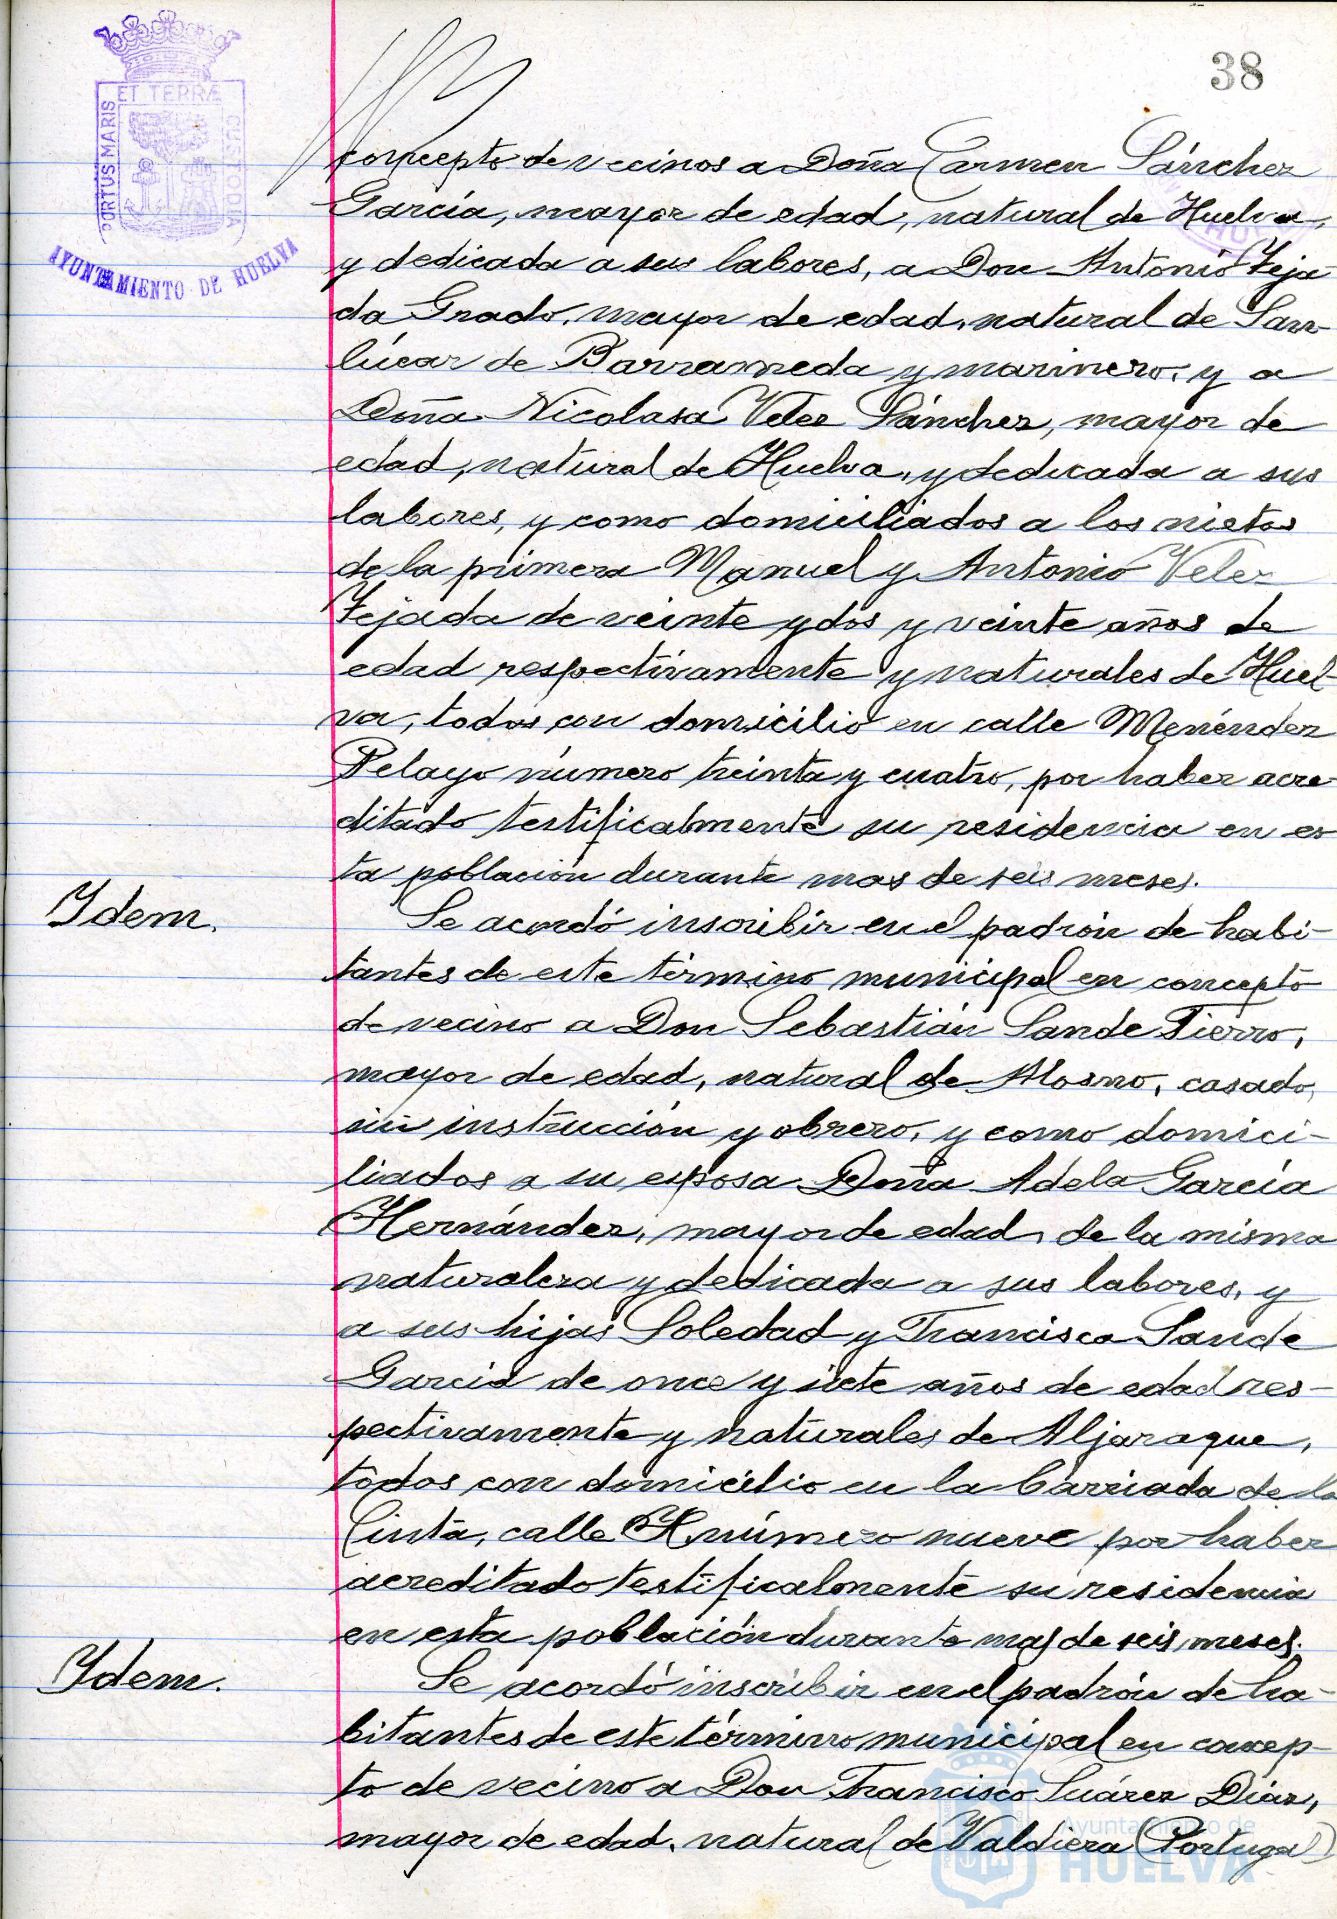 38
PORTUS MARIS
ET TERRÆ
CUSTODIA
AYUNTAMIENTO DE HUELVA
concepto de vecinos a Doña Carmen Sánchez
García, mayor de edad, natural de Huelva,
y dedicada a sus labores, a Don Antonio Teja-
da Grado, mayor de edad, natural de San-
lúcar de Barrameda y marinero, y a
Doña Nicolasa Velez Sánchez, mayor de
edad, natural de Huelva, y dedicada a sus
labores, y como domiciliados a los nietos
de la primera Manuel y Antonio Velez
Tejada de veinte y dos y veinte años de
edad respectivamente y naturales de Huel-
va, todos con domicilio en calle Menéndez
Pelayo número treinta y cuatro, por haber acre-
ditado testificalmente su residencia en es-
ta población durante mas de seis meses.
Ydem.
Se acordó inscribir en el padrón de habi-
tantes de este término municipal en concepto
de vecino a Don Sebastián Sande Fierro,
mayor de edad, natural de Alosno, casado,
sin instrucción y obrero, y como domici-
liados a su esposa Doña Adela García
Hernández, mayor de edad, de la misma
naturaleza y dedicada a sus labores, y
a sus hijas Soledad y Francisca Sande
García de once y siete años de edad res-
pectivamente y naturales de Aljaraque,
todos con domicilio en la barriada de la
Cinta, calle H número nueve por haber
acreditado testificalmente su residencia
en esta población durante mas de seis meses.
Ydem.
Se acordó inscribir en el padrón de ha-
bitantes de este término municipal en concep-
to de vecino a Don Francisco Suárez Díaz,
mayor de edad, natural de Valdiera (Portugal)
Ayuntamiento de
HUELVA